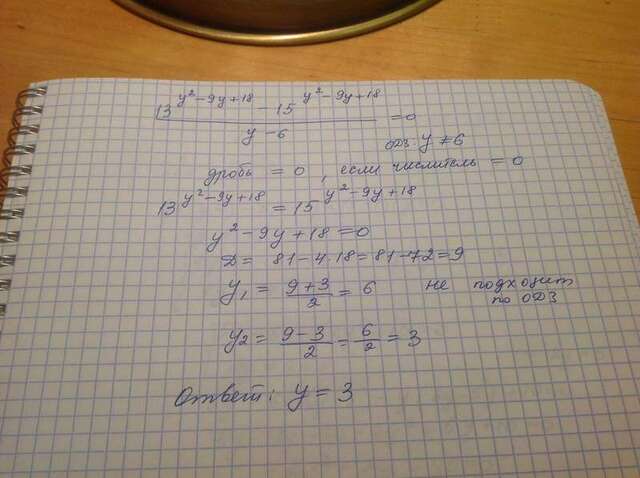 (13^(y²-9y+18) - 15^(y²-9y+18)) / (y-6) = 0
ОДЗ: y ≠ 6
дробь = 0, если числитель = 0
13^(y²-9y+18) = 15^(y²-9y+18)
y²-9y+18=0
D = 81-4·18=81-72=9
y₁ = (9+3)/2 = 6 не подходит
по ОДЗ
y₂ = (9-3)/2 = 6/2 = 3
Ответ: y = 3